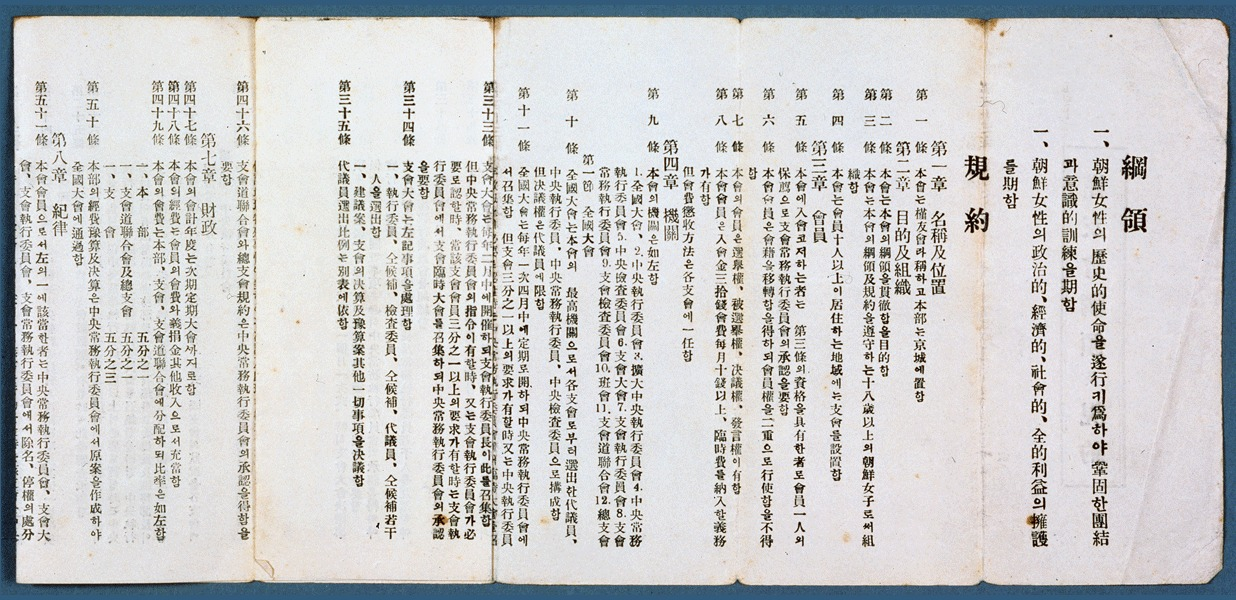 綱領
一、朝鮮女性의歷史的使命을遂行키爲하야鞏固한團結
과意識的訓練을期함
一、朝鮮女性의政治的、經濟的、社會的、全的利益의擁護
를期함
規約
第一章 名稱及位置
第一條 本會는槿友會라稱하고本部는京城에置함
第二章 目的及組織
第二條 本會는本會의綱領을貫徹함을目的함
第三條 本會는本會의綱領及規約을遵守하는十八歲以上의朝鮮女子로써組
織함
第四條 本會는會員十人以上이居住하는地域에는支會를設置함
第三章 會員
第五條 本會에入會코저하는者는 第三條의資格을具有한者로會員一人의
保薦으로支會常務執行委員會의承認을要함
第六條 本會會員은會籍을移轉함을得하되會員權을二重으로行使함을不得
함
第七條 本會의會員은選擧權、被選擧權、決議權、發言權이有함
第八條 本會會員은入會金三拾錢會費每月十錢以上、臨時費를納入할義務
가有함
但會費懲收方法은各支會에一任함
第四章 機關
第九條 本會의機關은如左함
1.全國大會、2.中央執行委員會3.擴大中央執行委員會4.中央常務
執行委員會5.中央檢査委員會6.支會大會7.支會執行委員會8.支會
常務執行委員會9.支會檢査委員會10.班會11.支會道聯合會12.總支會
第一節 全國大會
第十條 全國大會는本會의 最高機關으로서各支會로부터選出한代議員、
中央執行委員、中央常務執行委員、中央檢査委員으로構成함
但決議權은代議員에限함
第十一條 全國大會는每年一次四月中에定期로開하되中央常務執行委員會에
서召集함 但支會三分之一以上의要求가有할時又는中央執行委員
第三十三條 支會大會는每年二月中에開催하되支會執行委員長이此를召集함
但中央執行委員會의指令이有할時、又는支會執行委員會가必
要로認할時、當該支會會員三分之一以上의要求가有할時는支會執
行委員會에서支會臨時大會를召集하되中央常務執行委員會의承認
을要함
第三十四條 支會大會는左記事項을處理함
一、執行委員、仝候補、檢査委員、仝候補、代議員、仝候補若干
人을選出함
一、建議案、支會의決算及豫算案其他一切事項을決議함
第三十五條 代議員選出比例는別表에依함
第四十六條 支會道聯合會와總支會規約은中央常務執行委員會의承認을得함을
要함
第七章 財政
第四十七條 本會의會計年度는次期定期大會까지로함
第四十八條 本會의經費는會員의會費와義捐金其他收入으로서充當함
第四十九條 本會의會費는本部、支會、支會道聯合會에分配하되比率은如左함
一、本部 五分之一
一、支會道聯合會及總支會 五分之一
一、支會 五分之三
第五十條 本部의經費豫算及決算은中央常務執行委員會에서原案을作成하야
全國大會에通過함
第八章 紀律
第五十一條 本會會員으로서左의一에該當한者는中央常務執行委員會、支會大
會、支會執行委員會、支會常務執行委員會에서除名、停權의處分